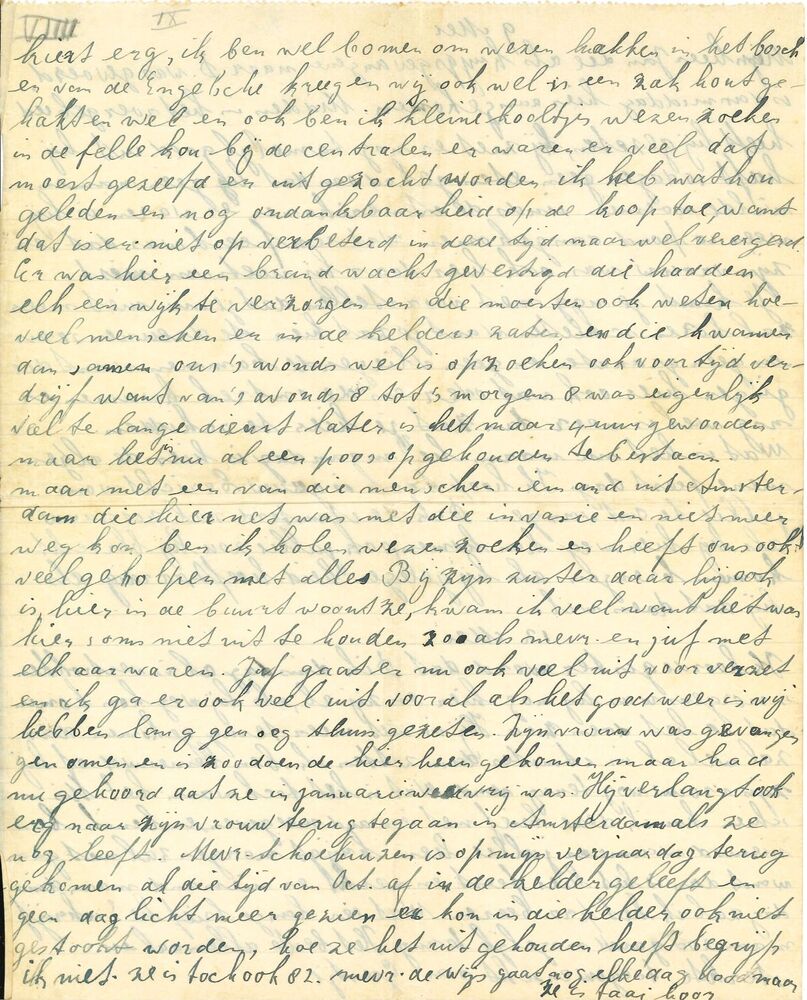 VIII IX
hier erg, ik ben wel bomen om wezen hakken in het bosch
en van de Engelsche kregen wij ook wel is een zak hout ge-
hakt en wel en ook ben ik kleine kooltjes wezen zoeken
in de felle kou bij de centralen er waren er veel dat
moest gezeefd en uit gezocht worden ik heb wat kou
geleden en nog ondankbaarheid op de koop toe, want
dat is er niet op verbeterd in deze tijd maar wel verergerd.
Er was hier een brand wacht gevestigd die hadden
elk een wijk te verzorgen en die moesten ook weten hoe-
veel menschen er in de kelders zaten en die kwamen
dan samen ons 's avonds wel is opzoeken ook voor tijd ver-
drijf want van 's avonds 8 tot 's morgens 8 was eigenlijk
veel te lange dienst later is het maar 4 uur geworden
maar het is nu al een poos opgehouden te bestaan
maar met een van die menschen iemand uit Amster-
dam die hier net was met die invasie en niet meer
weg kon ben ik kolen wezen zoeken en heeft ons ook
veel geholpen met alles Bij zijn zuster daar hij ook
is, hier in de buurt woont ze, kwam ik veel want het was
hier soms niet uit te houden zooals mevr. en juf met
elkaar waren. Juf gaat er nu ook veel uit voor verzet
en ik ga er ook veel uit vooral als het goed weer is wij
hebben lang genoeg thuis gezeten. Zijn vrouw was gevangen
genomen en is zoodoende hier heen gekomen maar had
nu gehoord dat ze in januarie weer vrij was. Hij verlangt ook
erg naar zijn vrouw terug te gaan in Amsterdam als ze
nog leeft. Mevr. Schoehuizen is op mijn verjaardag terug
gekomen al die tijd van Oct. af in de kelder geleeft en
geen dag licht meer gezien er kon in die kelder ook niet
gestookt worden, hoe ze het uitgehouden heeft begrijp
ik niet. ze is toch ook 82. mevr. de Wijs gaat nog elke dag
ze is taaj hoor